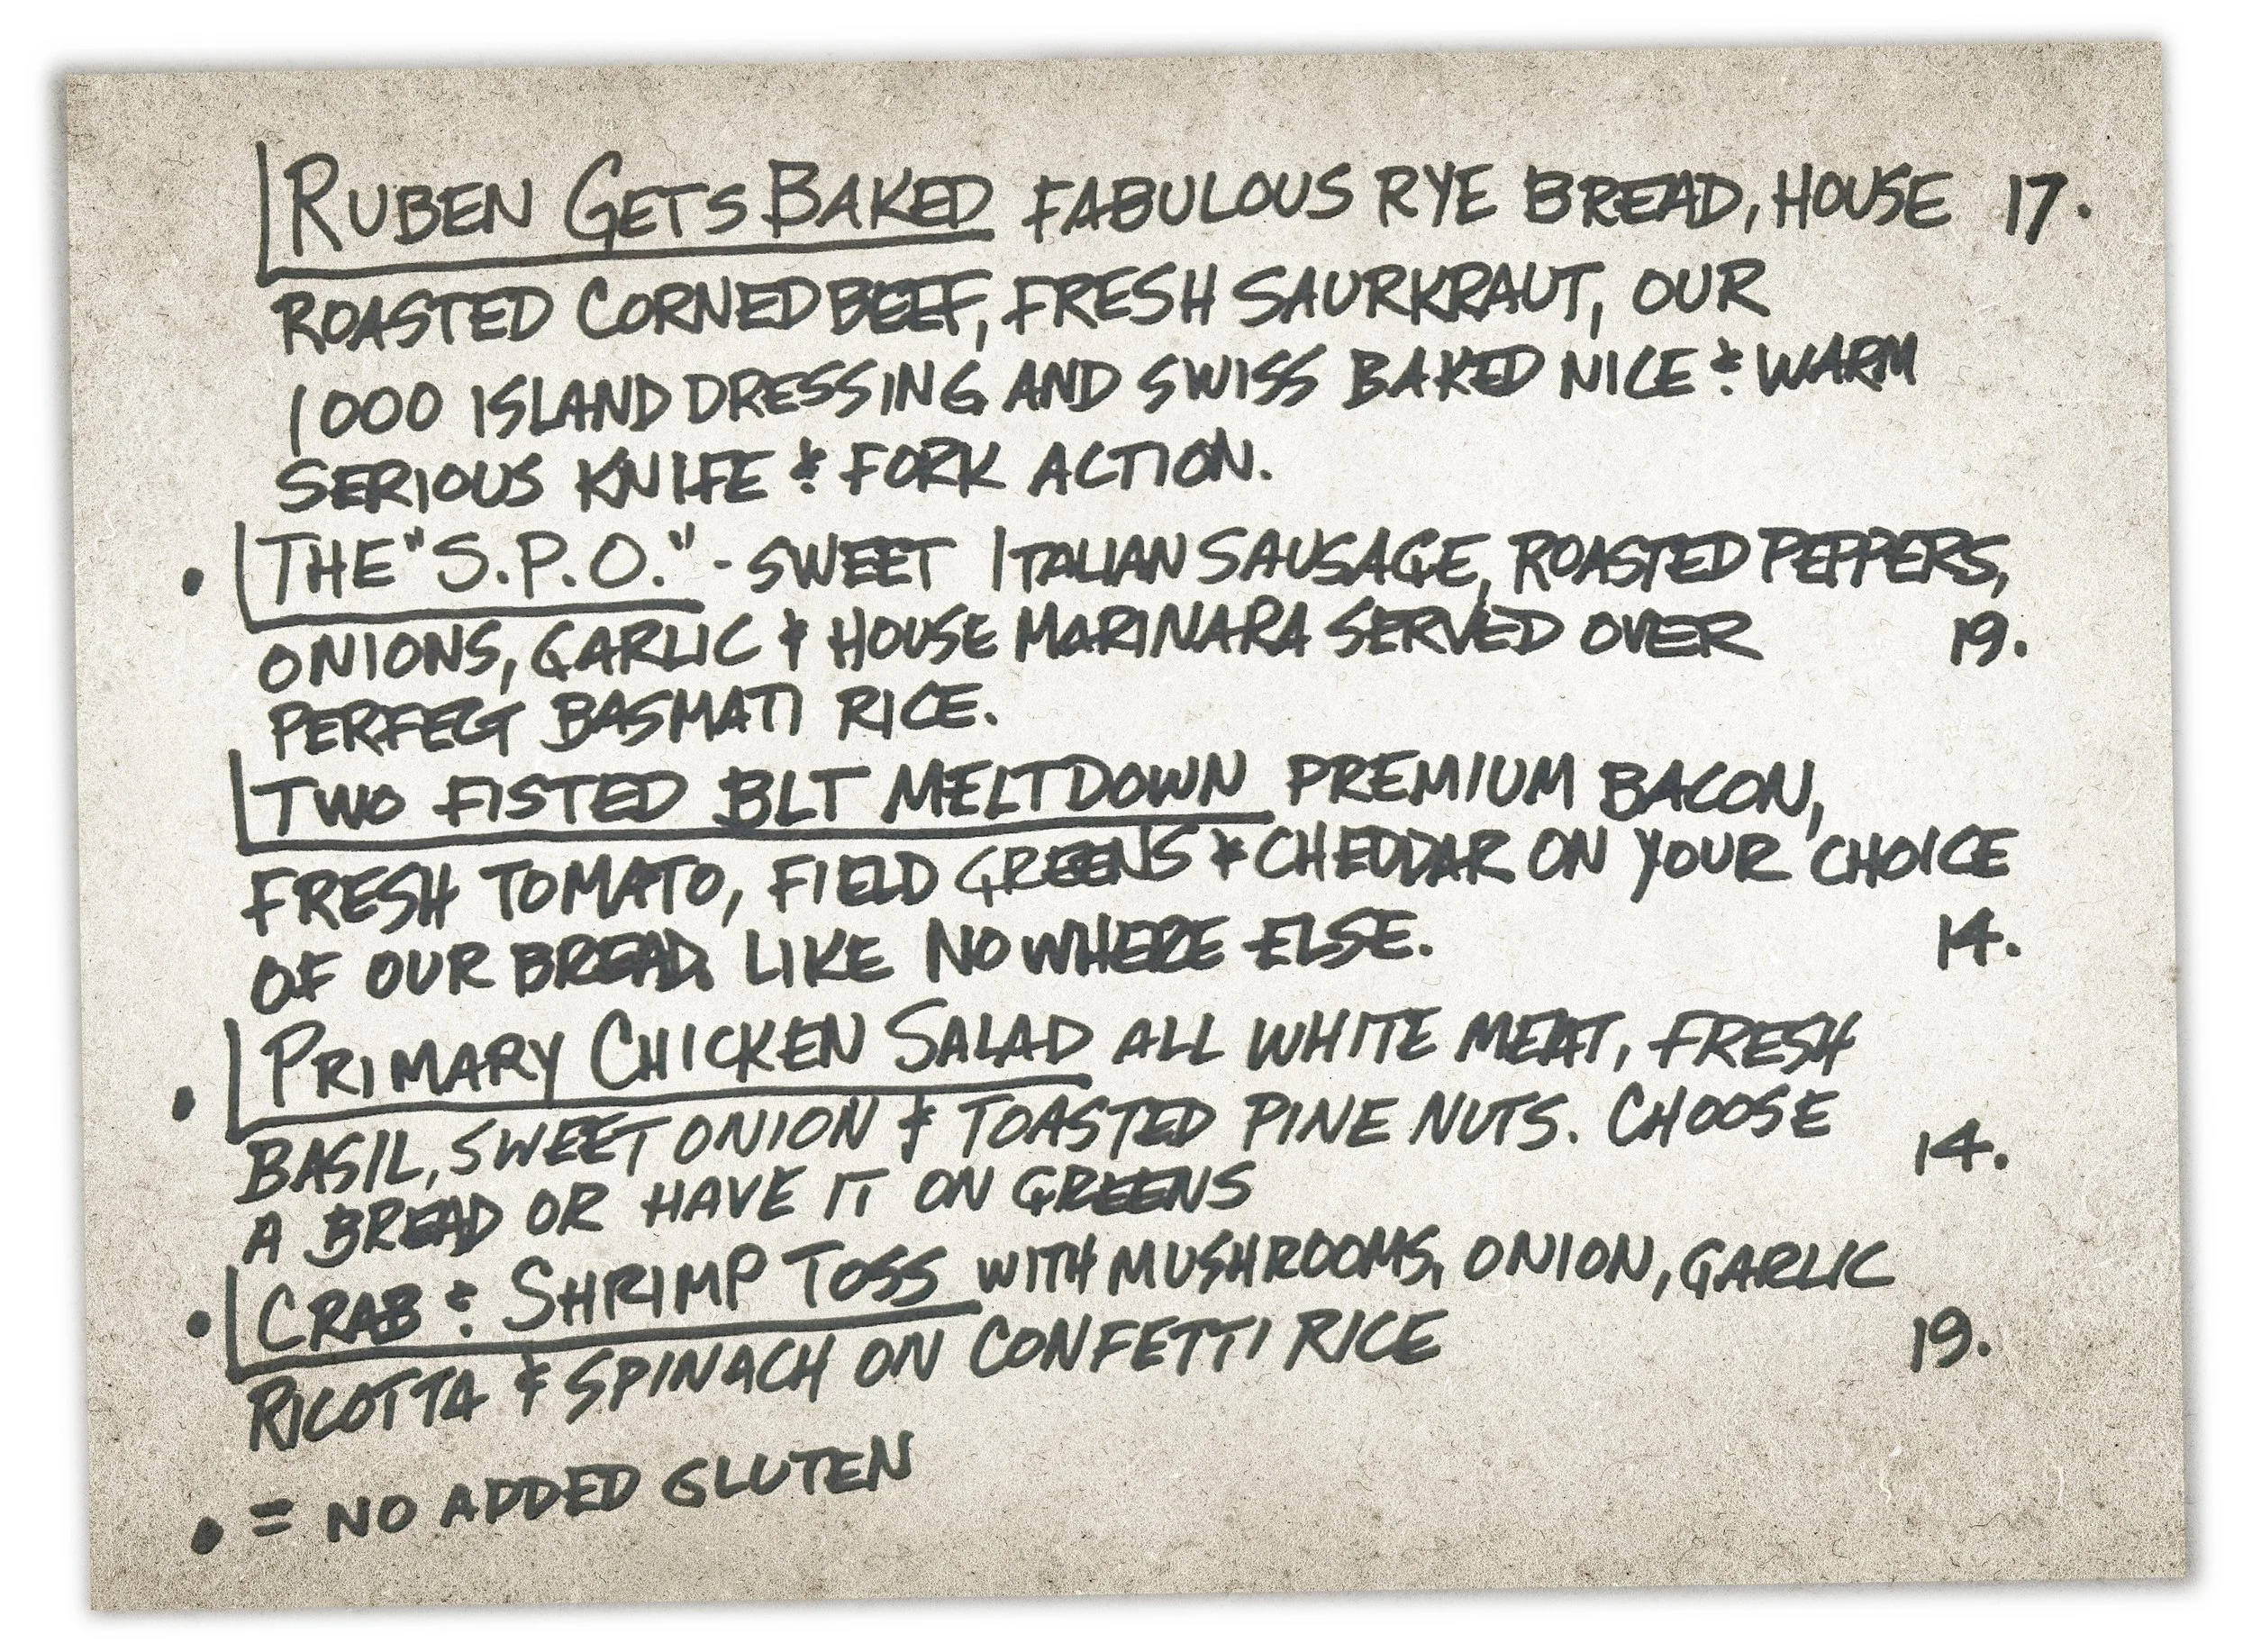 RUBEN GETS BAKED FABULOUS RYE BREAD, HOUSE 17.
ROASTED CORNED BEEF, FRESH SAURKRAUT, OUR
1000 ISLAND DRESSING AND SWISS BAKED NICE & WARM
SERIOUS KNIFE & FORK ACTION.
• THE "S.P.O." - SWEET ITALIAN SAUSAGE, ROASTED PEPPERS,
ONIONS, GARLIC & HOUSE MARINARA SERVED OVER 19.
PERFECT BASMATI RICE.
TWO FISTED BLT MELTDOWN PREMIUM BACON,
FRESH TOMATO, FIELD GREENS & CHEDDAR ON YOUR CHOICE
OF OUR BREAD. LIKE NOWHERE ELSE. 14.
• PRIMARY CHICKEN SALAD ALL WHITE MEAT, FRESH
BASIL, SWEET ONION & TOASTED PINE NUTS. CHOOSE 14.
A BREAD OR HAVE IT ON GREENS
• CRAB & SHRIMP TOSS WITH MUSHROOMS, ONION, GARLIC
RICOTTA & SPINACH ON CONFETTI RICE 19.
• = NO ADDED GLUTEN